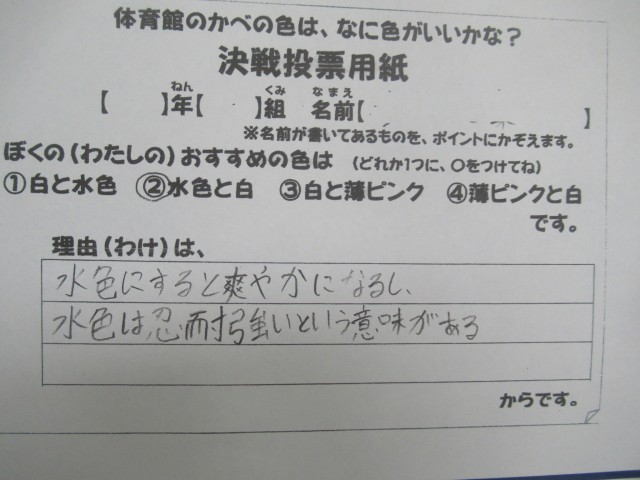 体育館のかべの色は、なに色がいいかな？
決戦投票用紙
【　　】年【　　】組　名前【　　　　　　】
ねん　くみ　なまえ
※名前が書いてあるものを、ポイントにかぞえます。
ぼくの（わたしの）おすすめの色は　（どれか1つに、○をつけてね）
①白と水色　②水色と白　③白と薄ピンク　④薄ピンクと白
です。
理由（わけ）は、
水色にすると爽やかになるし、
水色は忍耐強いという意味がある
からです。